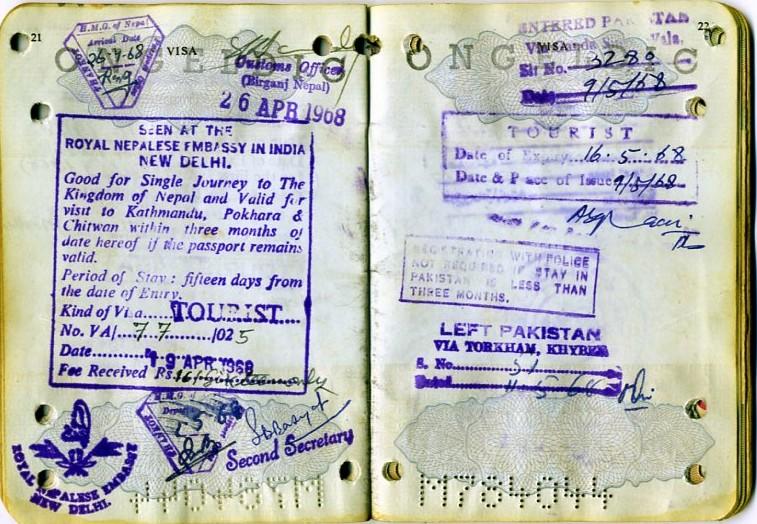 21
VISA
H.M.G. of Nepal
Arrival Date
26-4-68
Customs Officer
(Birganj Nepal)
26 APR 1968
SEEN AT THE
ROYAL NEPALESE EMBASSY IN INDIA
NEW DELHI.
Good for Single Journey to The
Kingdom of Nepal and Valid for
visit to Kathmandu, Pokhara &
Chitwan within three months of
date hereof if the passport remains
valid.
Period of Stay : fifteen days from
the date of Entry.
Kind of Visa TOURIST....
No. VA/...77........./025
Date.......... 19 APR 1968
Fee Received Rs. 16/- only
H.M.G.
Second Secretary
ROYAL NEPALESE EMBASSY
NEW DELHI.
22
VISA
ENTERED PAKISTAN
Sr No. 3280
Date 9/5/68
TOURIST
Date of Expiry...16..5..68
Date & Place of Issue 9/5/68
REGISTRATION WITH POLICE
NOT REQUIRED IF STAY IN
PAKISTAN IS LESS THAN
THREE MONTHS.
LEFT PAKISTAN
VIA TORKHAM, KHYBER
S. No.
Dated 11-5-68